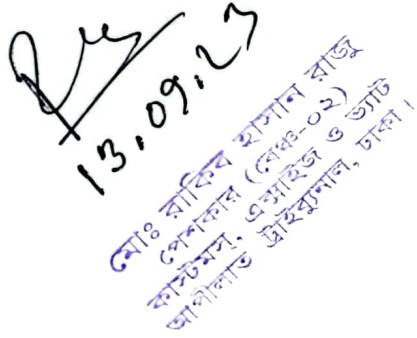 13.09.23
মোঃ রাকিব হাসান রাজু
পেশকার (বেঞ্চ-০২)
কাস্টমস, এক্সাইজ ও ভ্যাট
আপীলাত ট্রাইব্যুনাল, ঢাকা।